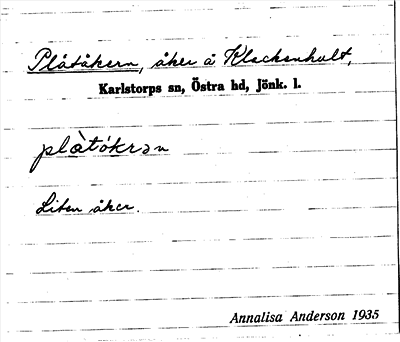 Plåtåkern, åker å Klackenhult,
Karlstorps sn, Östra hd, Jönk. l.
plàtókrən
Liten åker.
Annalisa Anderson 1935